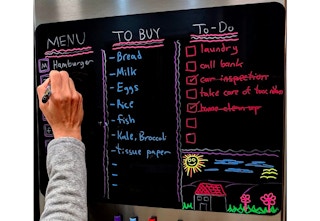 MENU
M Hamburger
TO BUY
-Bread
-Milk
-Eggs
-Rice
-fish
-Kale, Broccoli
-tissue paper
To-Do
laundry
call bank
car inspection
take care of